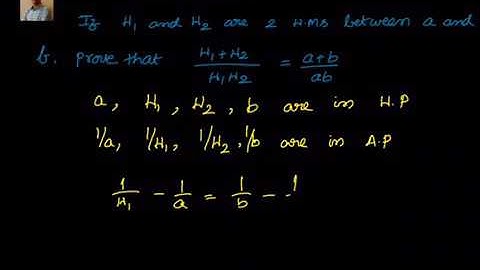 If H₁ and H₂ are 2 H.Ms between a and
b. prove that (H₁+H₂)/(H₁H₂) = (a+b)/(ab)
a, H₁, H₂, b are in H.P
1/a, 1/H₁, 1/H₂, 1/b are in A.P
1/H₁ - 1/a = 1/b - 1